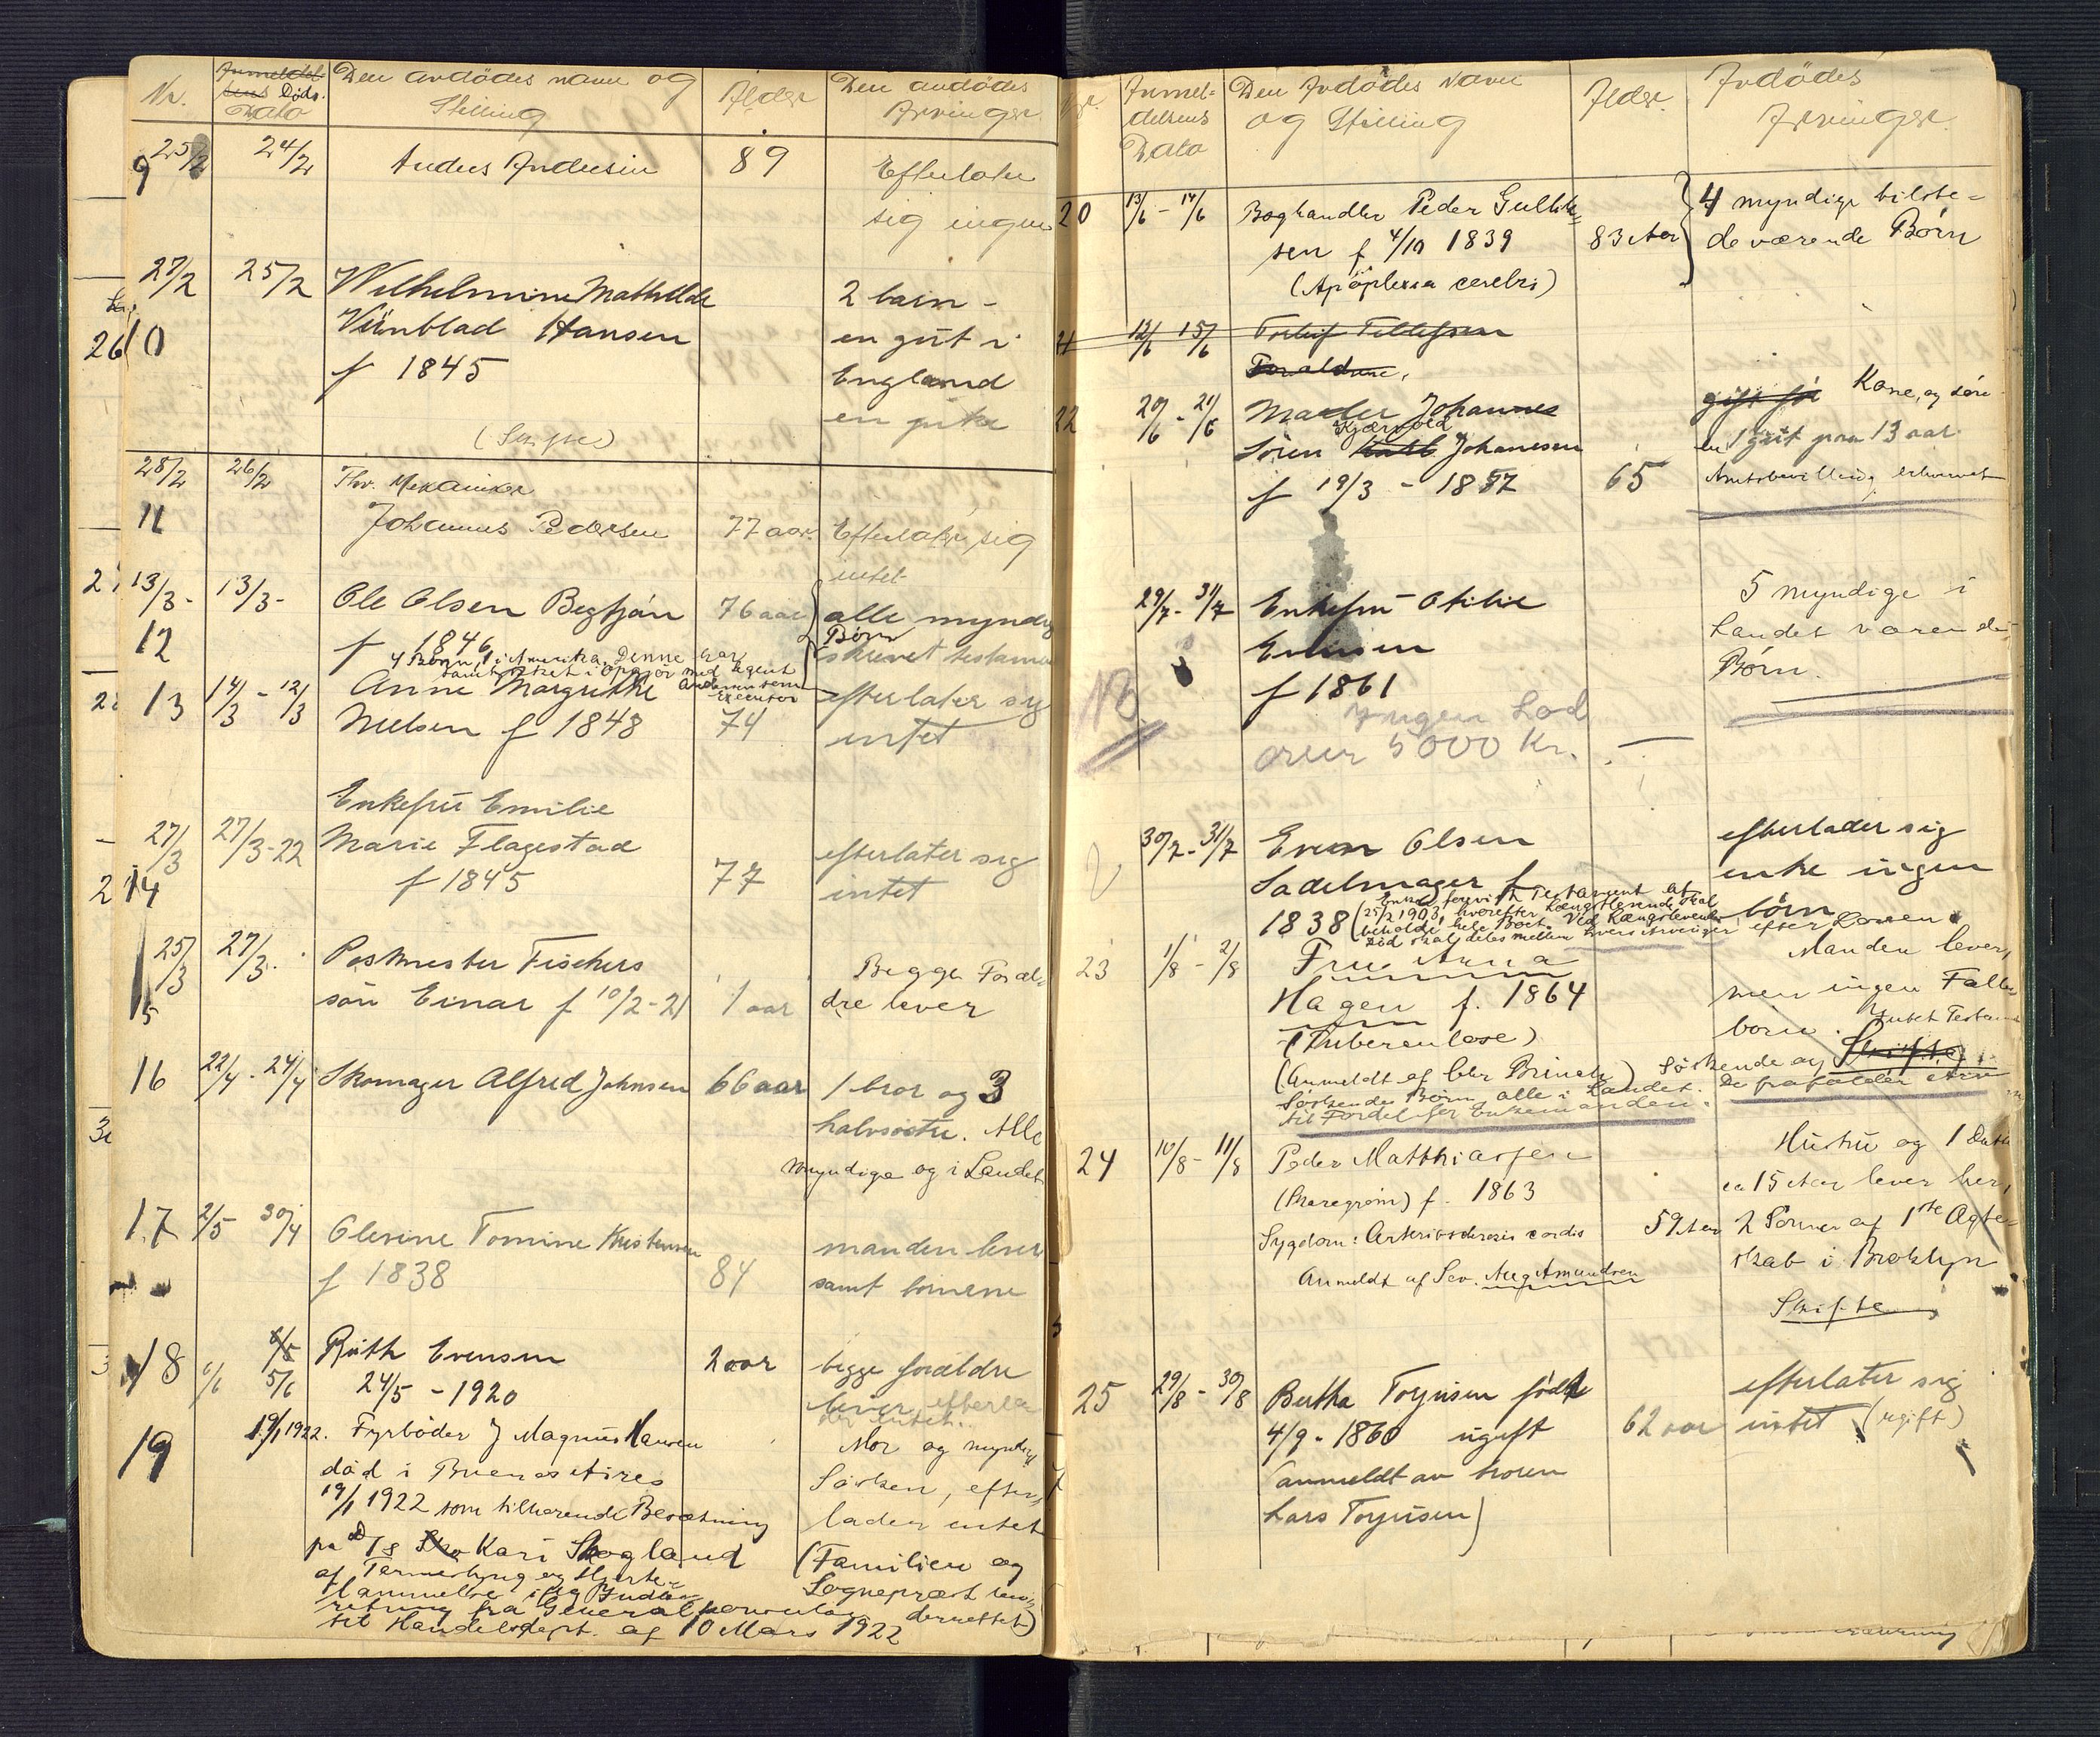 Nr.
Anmeldelsens Døds.
Dato
Den avdødes navn og
Stilling
Alder
Den avdødes
Arvinger
9 25/2 24/2 Anders Andersen 89 Efterlater
sig ingen
27/2 25/2 Wilhelmine Mathilde 2 barn -
10 Vünblad Hansen en gut i
f 1845 England
en pike
(Skifte)
28/2 26/2 Fhv. Mekaniker
11 Johannes Pedersen 77 aar. Efterlater sig
intet
13/3 - 13/3 - Ole Olsen Begfján 76 aar alle myndig
12 f 1846 Børn
4 Børn, 1 i Amerika. Denne har skrevet testame
samtykket i Opgjør med Agent
Andersen som
Executor
13 14/3 - 12/3 Anne Margrethe efterlater sig
Nielsen f 1848 74 intet
Enkefru Emilie
27/3 27/3-22 Marie Flagestad efterlater sig
14 f 1845 77 intet
25/3 27/3. Postmester Fischers Begge Foræl-
15 søn Einar f 10/2-21 1 aar dre lever
16 22/4 - 24/4 Skomager Alfred Johnsen 66 aar 1 bror og 3
halvsøstre. Alle
myndige og i Landet
17 2/5 30/4 Olevine Tomine Kristensen manden lever
f 1838 84 samt børnene
18 6/6 6/5 Rüth Evensen 2 aar begge forældre
5/6 24/5 - 1920 lever, efterla
der intet.
19 19/1 1922. Fyrbøder J Magnus Hansen Mor og myndige
død i Buenos Aires Søsken, efter
19/1 1922 som tilhørende Besætning lader intet
paa D/S Kari Skogland (Familien og
af Tarmerbyug og Hjerte- Sogneprest un-
lammelse ifølg Indbe- derrettet)
retning fra Generalkonsulen
til Handelsdept. af 10 Mars 1922
Nr.
Anmel-
delsens
Dato
Den Avdødes Navn
og Stilling
Alder.
Avdødes
Arvinger.
20 13/6 - 14/6 Boghandler Peder Gullik- 4 myndige tilste-
sen f 4/10 1839 83 Aar deværende Børn
(Apoplexia cerebri)
21 12/6 15/6 Torleif Tellefsen
Forældrene,
22 20/6 - 21/6 Matros Johannes gift for Kone, og søn
Kjærvold
Søren Johanesen en 1 gut paa 13 aar
f 19/3 - 1857 65 Amtsbevilling erhvervet
29/7 - 31/7 Enkefru Otilie 5 myndige i
Evensen Landet værende
f 1861 Børn.
NB. Ingen Lod
over 5000 Kr.
30/7 - 31/7 Even Olsen efterlader sig
Sadelmager f enke ingen
1838 (Enke ifølge Testament af børn
25/2 1903, hvorefter Længstlevende skal
beholde hele Boet. Ved Længstlevendes
Død skal deles mellem hvers Arvinger efter Loven.
23 1/8 - 2/8 Frue Anna Manden lever,
Hagen f. 1864 men ingen Fælles
(Tuberculose) børn. Intet Testament
(Anmeldt af Chr Brinch) Søskende og Skifte
Søskendes Børn, alle i Landet. De frafalder Arv
til Fordel for Enkemanden.
24 10/8 - 11/8 Peder Matthiassen Hustru og 1 Datter
f. 1863 ca 15 Aar lever her,
Sygdom: Arteriosclerosis cordis 59 Aar 2 Sønner af 1ste Ægte-
skab i Broklyn
Anmeldt af Sev. Aug Amundsen
Skifte
25 29/8 - 30/8 Bertha Torjusen født efterlater sig
4/9 - 1860 ugift 62 aar intet (ugift)
(anmeldt av broren
Lars Torjusen)